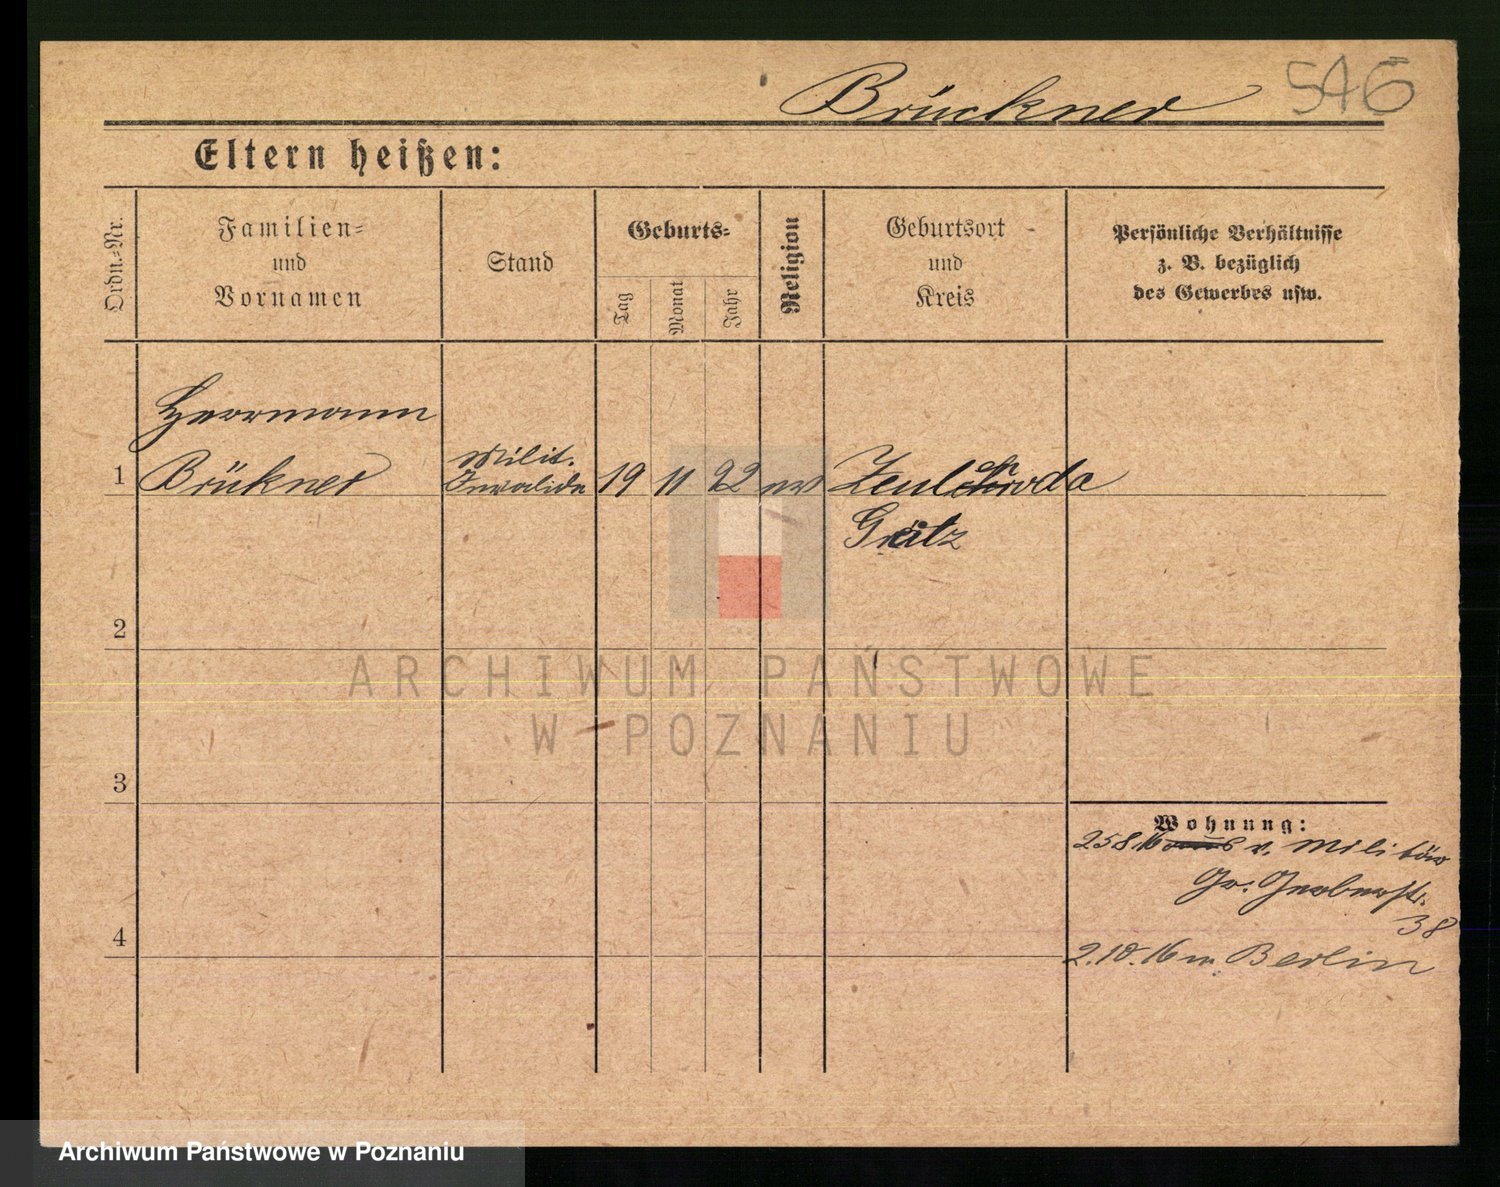 Brückner 546
Eltern heißen:
Ordn.-Nr.
Familien-
und
Vornamen
Stand
Geburts-
Tag
Monat
Jahr
Religion
Geburtsort
und
Kreis
Persönliche Verhältnisse
z. B. bezüglich
des Gewerbes usw.
Herrmann
1 Brükner Milit. Invalide 19 11 92 ev Zeulenroda
Grätz
2
ARCHIWUM PAŃSTWOWE
W POZNANIU
3
Wohnung:
25 8 16 v. Militär
Gr. Gerberstr.
38
4
2.10.16 n. Berlin
Archiwum Państwowe w Poznaniu